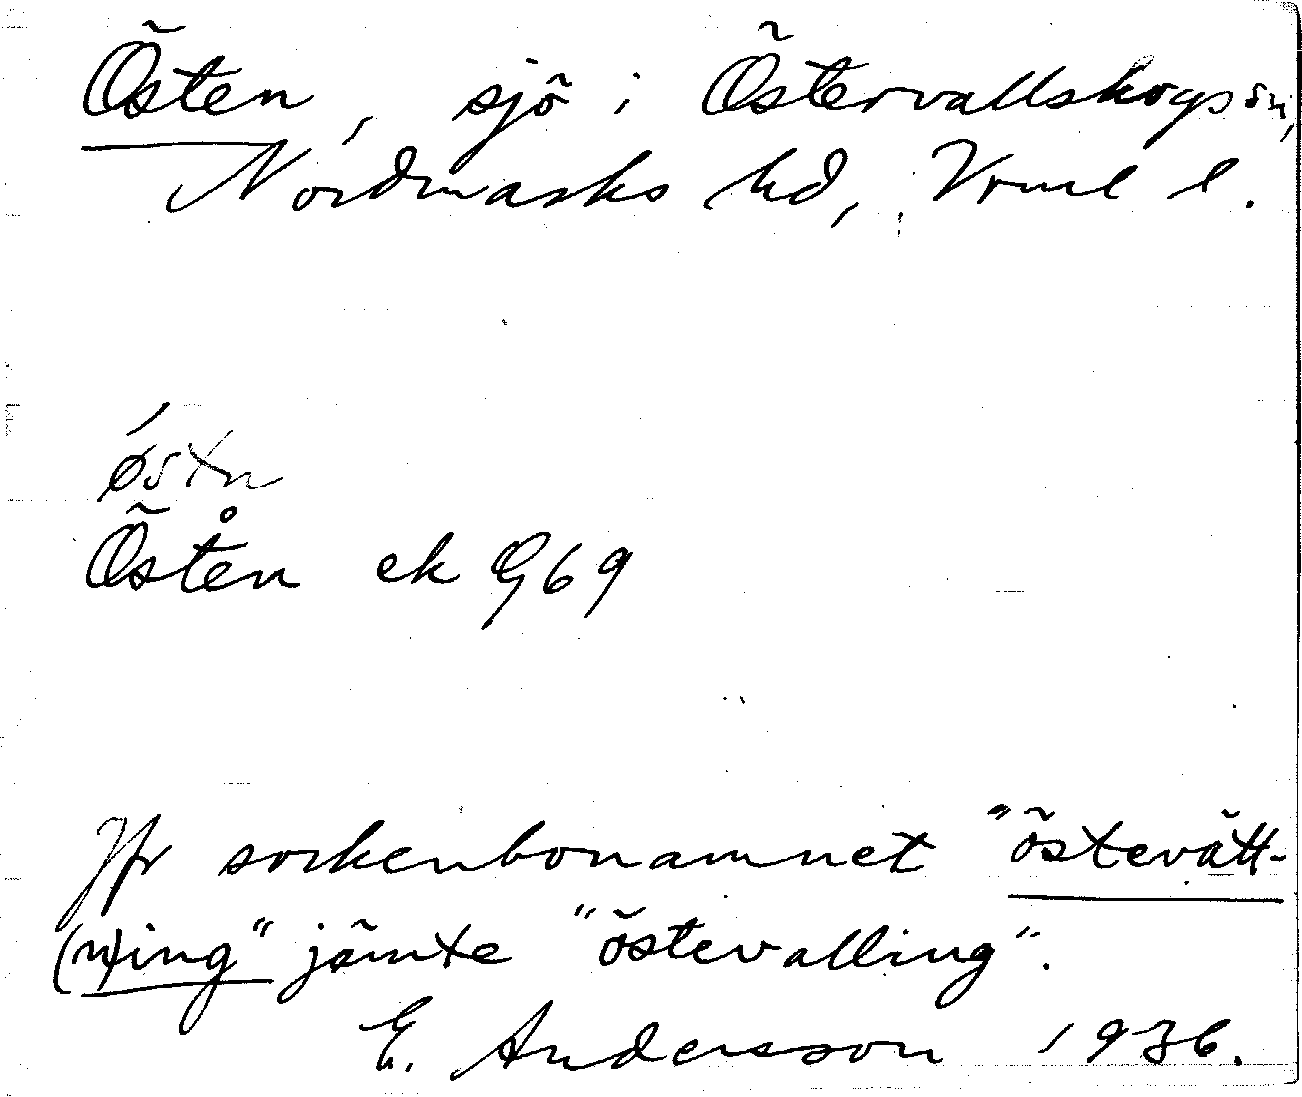 Östen, sjö i Östervallskogs sn,
Nordmarks hd, Vrml l.
östn
Östån ek G69
Jfr sockenbonamnet "östevätt-
(n)ing" jämte "östevalling".
E. Andersson 1936.